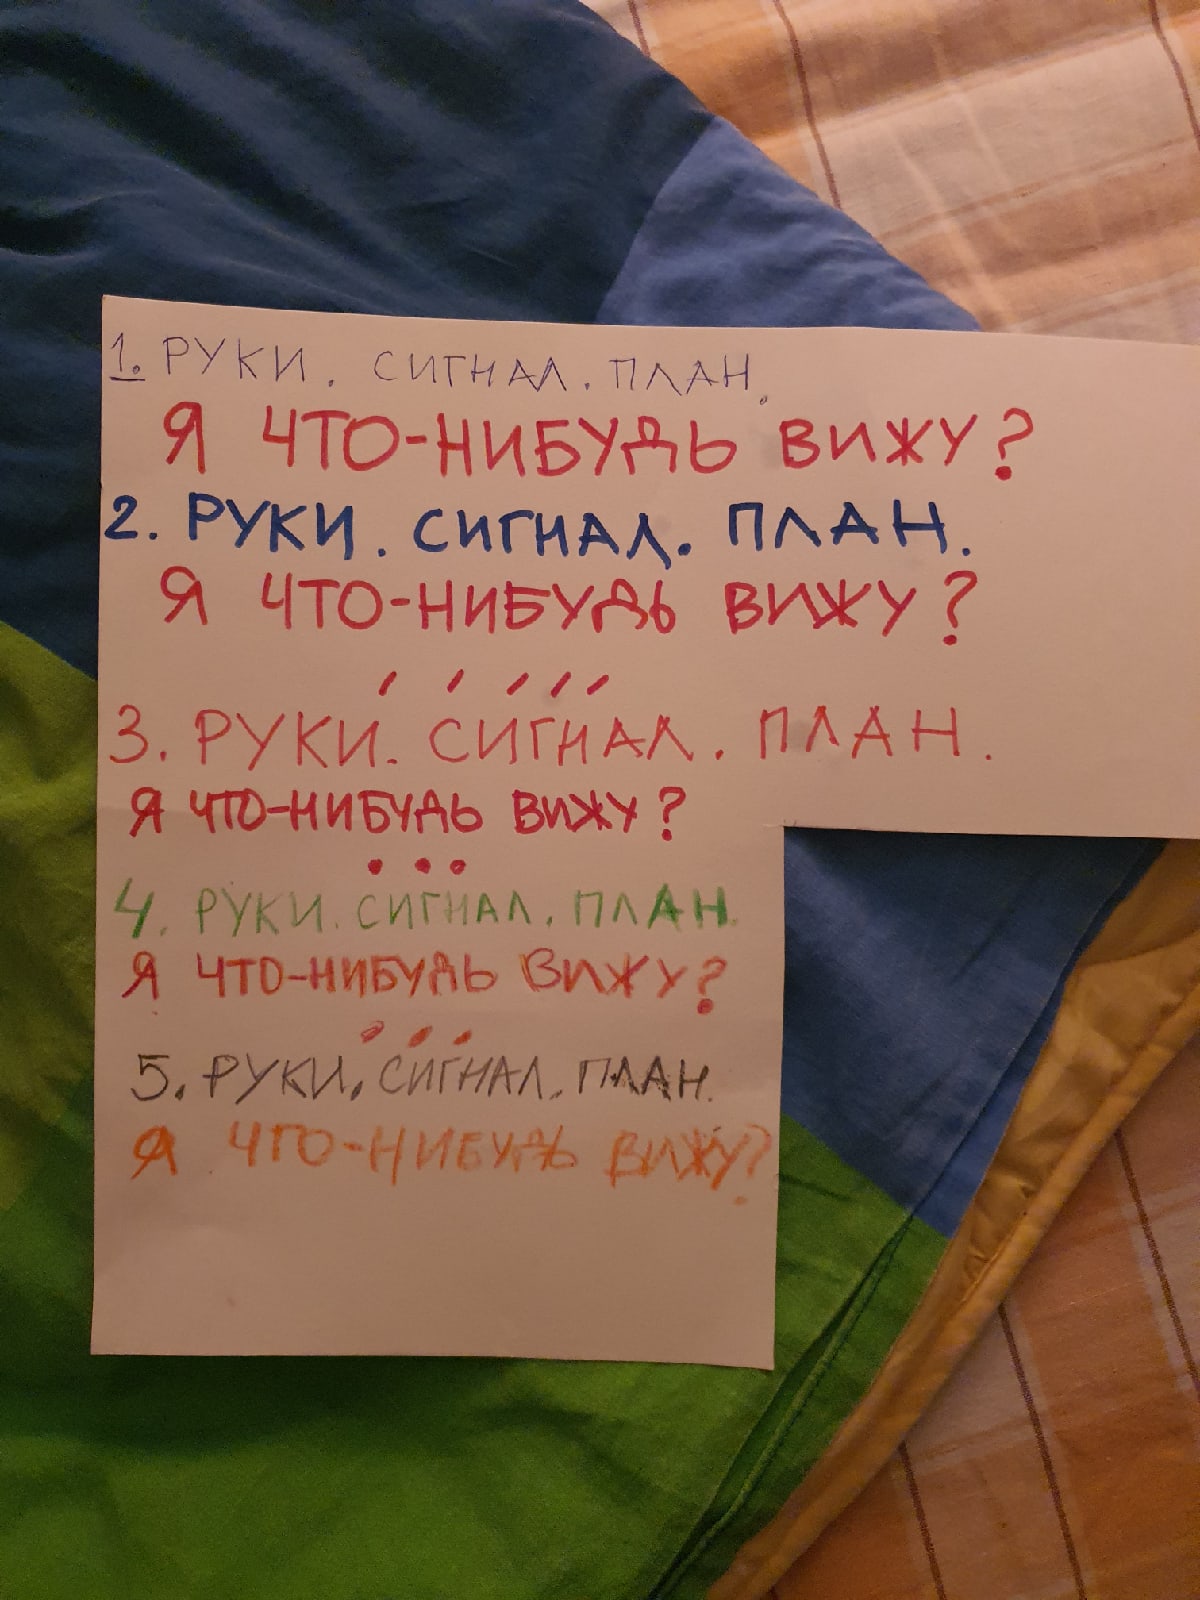 1. РУКИ. СИГНАЛ. ПЛАН.
Я ЧТО-НИБУДЬ ВИЖУ?
2. РУКИ. СИГНАЛ. ПЛАН.
Я ЧТО-НИБУДЬ ВИЖУ?
3. РУКИ. СИГНАЛ. ПЛАН.
Я ЧТО-НИБУДЬ ВИЖУ?
4. РУКИ. СИГНАЛ. ПЛАН.
Я ЧТО-НИБУДЬ ВИЖУ?
5. РУКИ. СИГНАЛ. ПЛАН.
Я ЧТО-НИБУДЬ ВИЖУ?